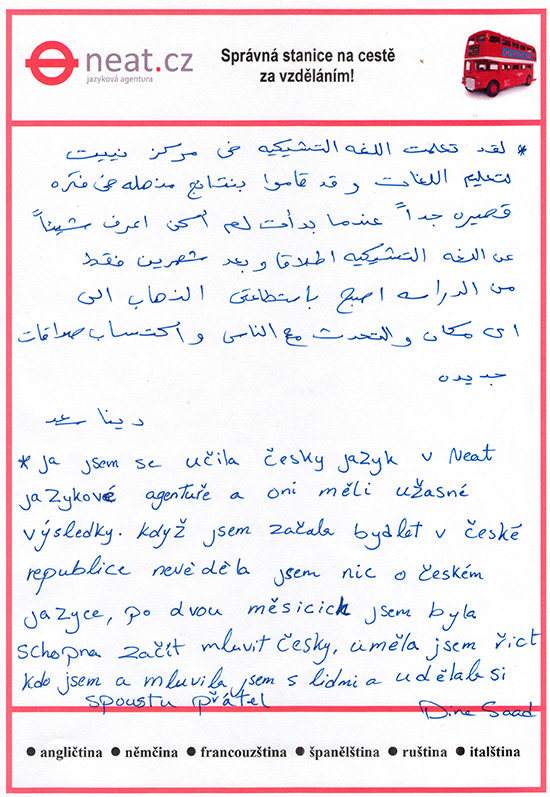 neat.cz
jazyková agentura
Správná stanice na cestě
za vzděláním!
* لقد تعلمت اللغه التشيكيه فى مركز نييت
لتعليم اللغات و قد قاموا بنتائج مذهله فى فتره
قصيره جداً عندما بدأت لم أكن اعرف شيئاً
عن اللغه التشيكيه اطلاقا و بعد شهرين فقط
من الدراسه اصبح باستطاعتى الذهاب الى
اى مكان والتحدث مع الناس و اكتساب صداقات
جديده
دينا سعد
* ja jsem se učila česky jazyk v Neat
jazykové agentuře a oni měli užasné
výsledky. když jsem začala bydlet v české
republice nevěděla jsem nic o českém
jazyce, po dvou měsicich jsem byla
schopna začít mluvit česky, uměla jsem řict
kdo jsem a mluvila jsem s lidmi a udělala si
spoustu přátel
Dina Saad
● angličtina ● němčina ● francouzština ● španělština ● ruština ● italština